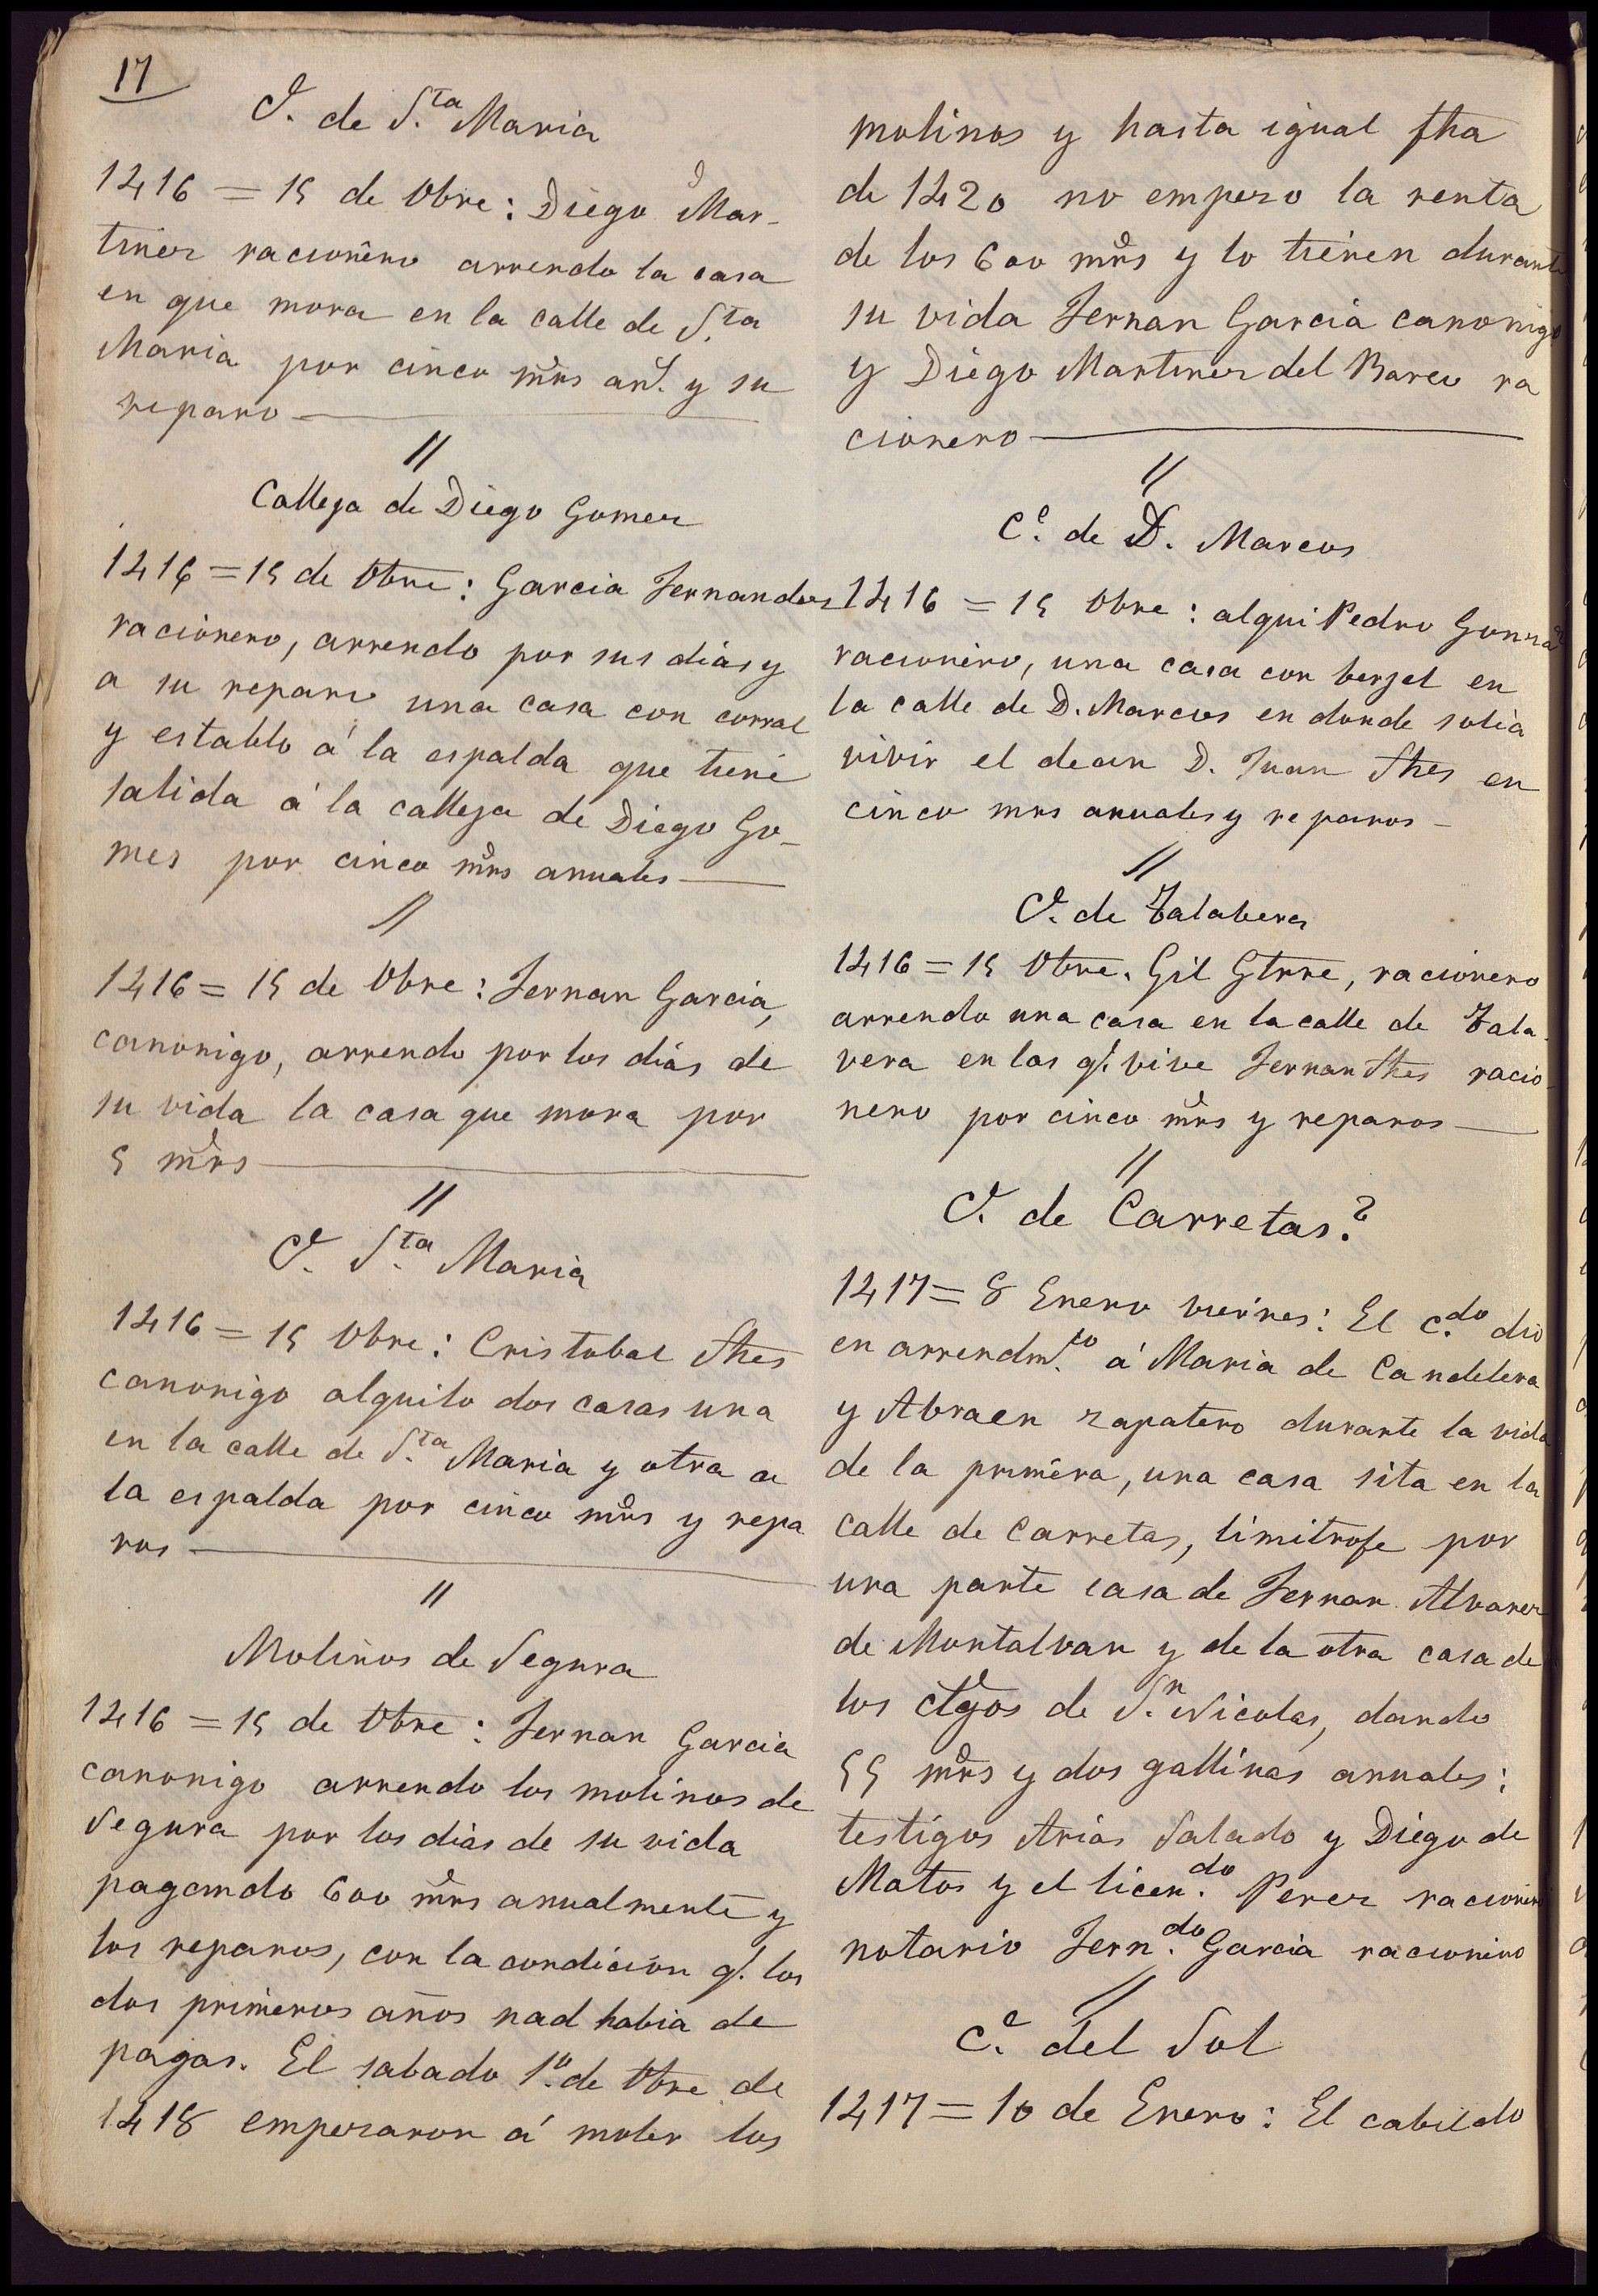 17
C.e de S.ta Maria
1416 = 15 de Obre: Diego Mar-
tinez racionero arrendo la casa
en que mora en la calle de S.ta
Maria por cinco mrs an.s y su
reparo
//
Calleja de Diego Gomez
1416 = 15 de Obre: Garcia Fernandez
racionero, arrendo por sus dias y
a su reparo una casa con corral
y establo á la espalda que tiene
salida á la calleja de Diego Go-
mes por cinco mrs anuales
//
1416 = 15 de Obre: Fernan Garcia,
canonigo, arrendo por los dias de
su vida la casa que mora por
5 mrs
//
C.e S.ta Maria
1416 = 15 Obre: Cristobal Shes
canonigo alquilo dos casas una
en la calle de S.ta Maria y otra a
la espalda por cinco mrs y repa
ros
//
Molinos de Segura
1416 = 15 de Obre: Fernan Garcia
canonigo arrendo los molinos de
Segura por los dias de su vida
pagando 600 mrs anualmente y
los reparos, con la condición q. los
dos primeros años nad habia de
pagar. El sabado 1.o de Obre de
1418 empezaron á moler los
molinos y hasta igual fha
de 1420 no empezo la renta
de los 600 mrs y lo tienen durante
su vida Fernan Garcia canonigo
y Diego Martinez del Barco ra
cionero
//
C.e de D. Marcos
1416 = 15 Obre: alqui Pedro Gonza
racionero, una casa con berjel en
la calle de D. Marcos en donde solia
vivir el dean D. Juan Shes en
cinco mrs anuales y reparos
//
C.e de Talabera
1416 = 15 Obre. Gil Gtrre, racionero
arrendo una casa en la calle de Tala-
vera en las q. vive Fernan Shes racio-
nero por cinco mrs y reparos
//
C.e de Carretas?
1417 = 8 Enero viernes: El c.do dio
en arrendm.to á Maria de Candelera
y Abraen zapatero durante la vida
de la primera, una casa sita en la
calle de Carretas, limitrofe por
una parte casa de Fernan Alvarez
de Montalvan y de la otra casa de
los clgos de S.n Nicolas, dando
55 mrs y dos gallinas anuales:
testigos Arias Salado y Diego de
Matos y el licen.do Perez racionero
notario Fern.do Garcia racionero
//
C.e del Sol
1417 = 10 de Enero: El cabildo